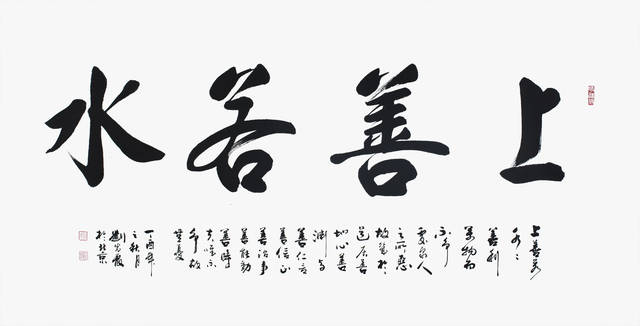 上善若水
上善若
水〻
善利
萬物而
不爭
處眾人
之所惡
故幾於
道居善
地心善
淵與
善仁言
善信正
善治事
善能動
善時
夫唯不
爭故
無
丁酉年
之秋月
劉
於北京